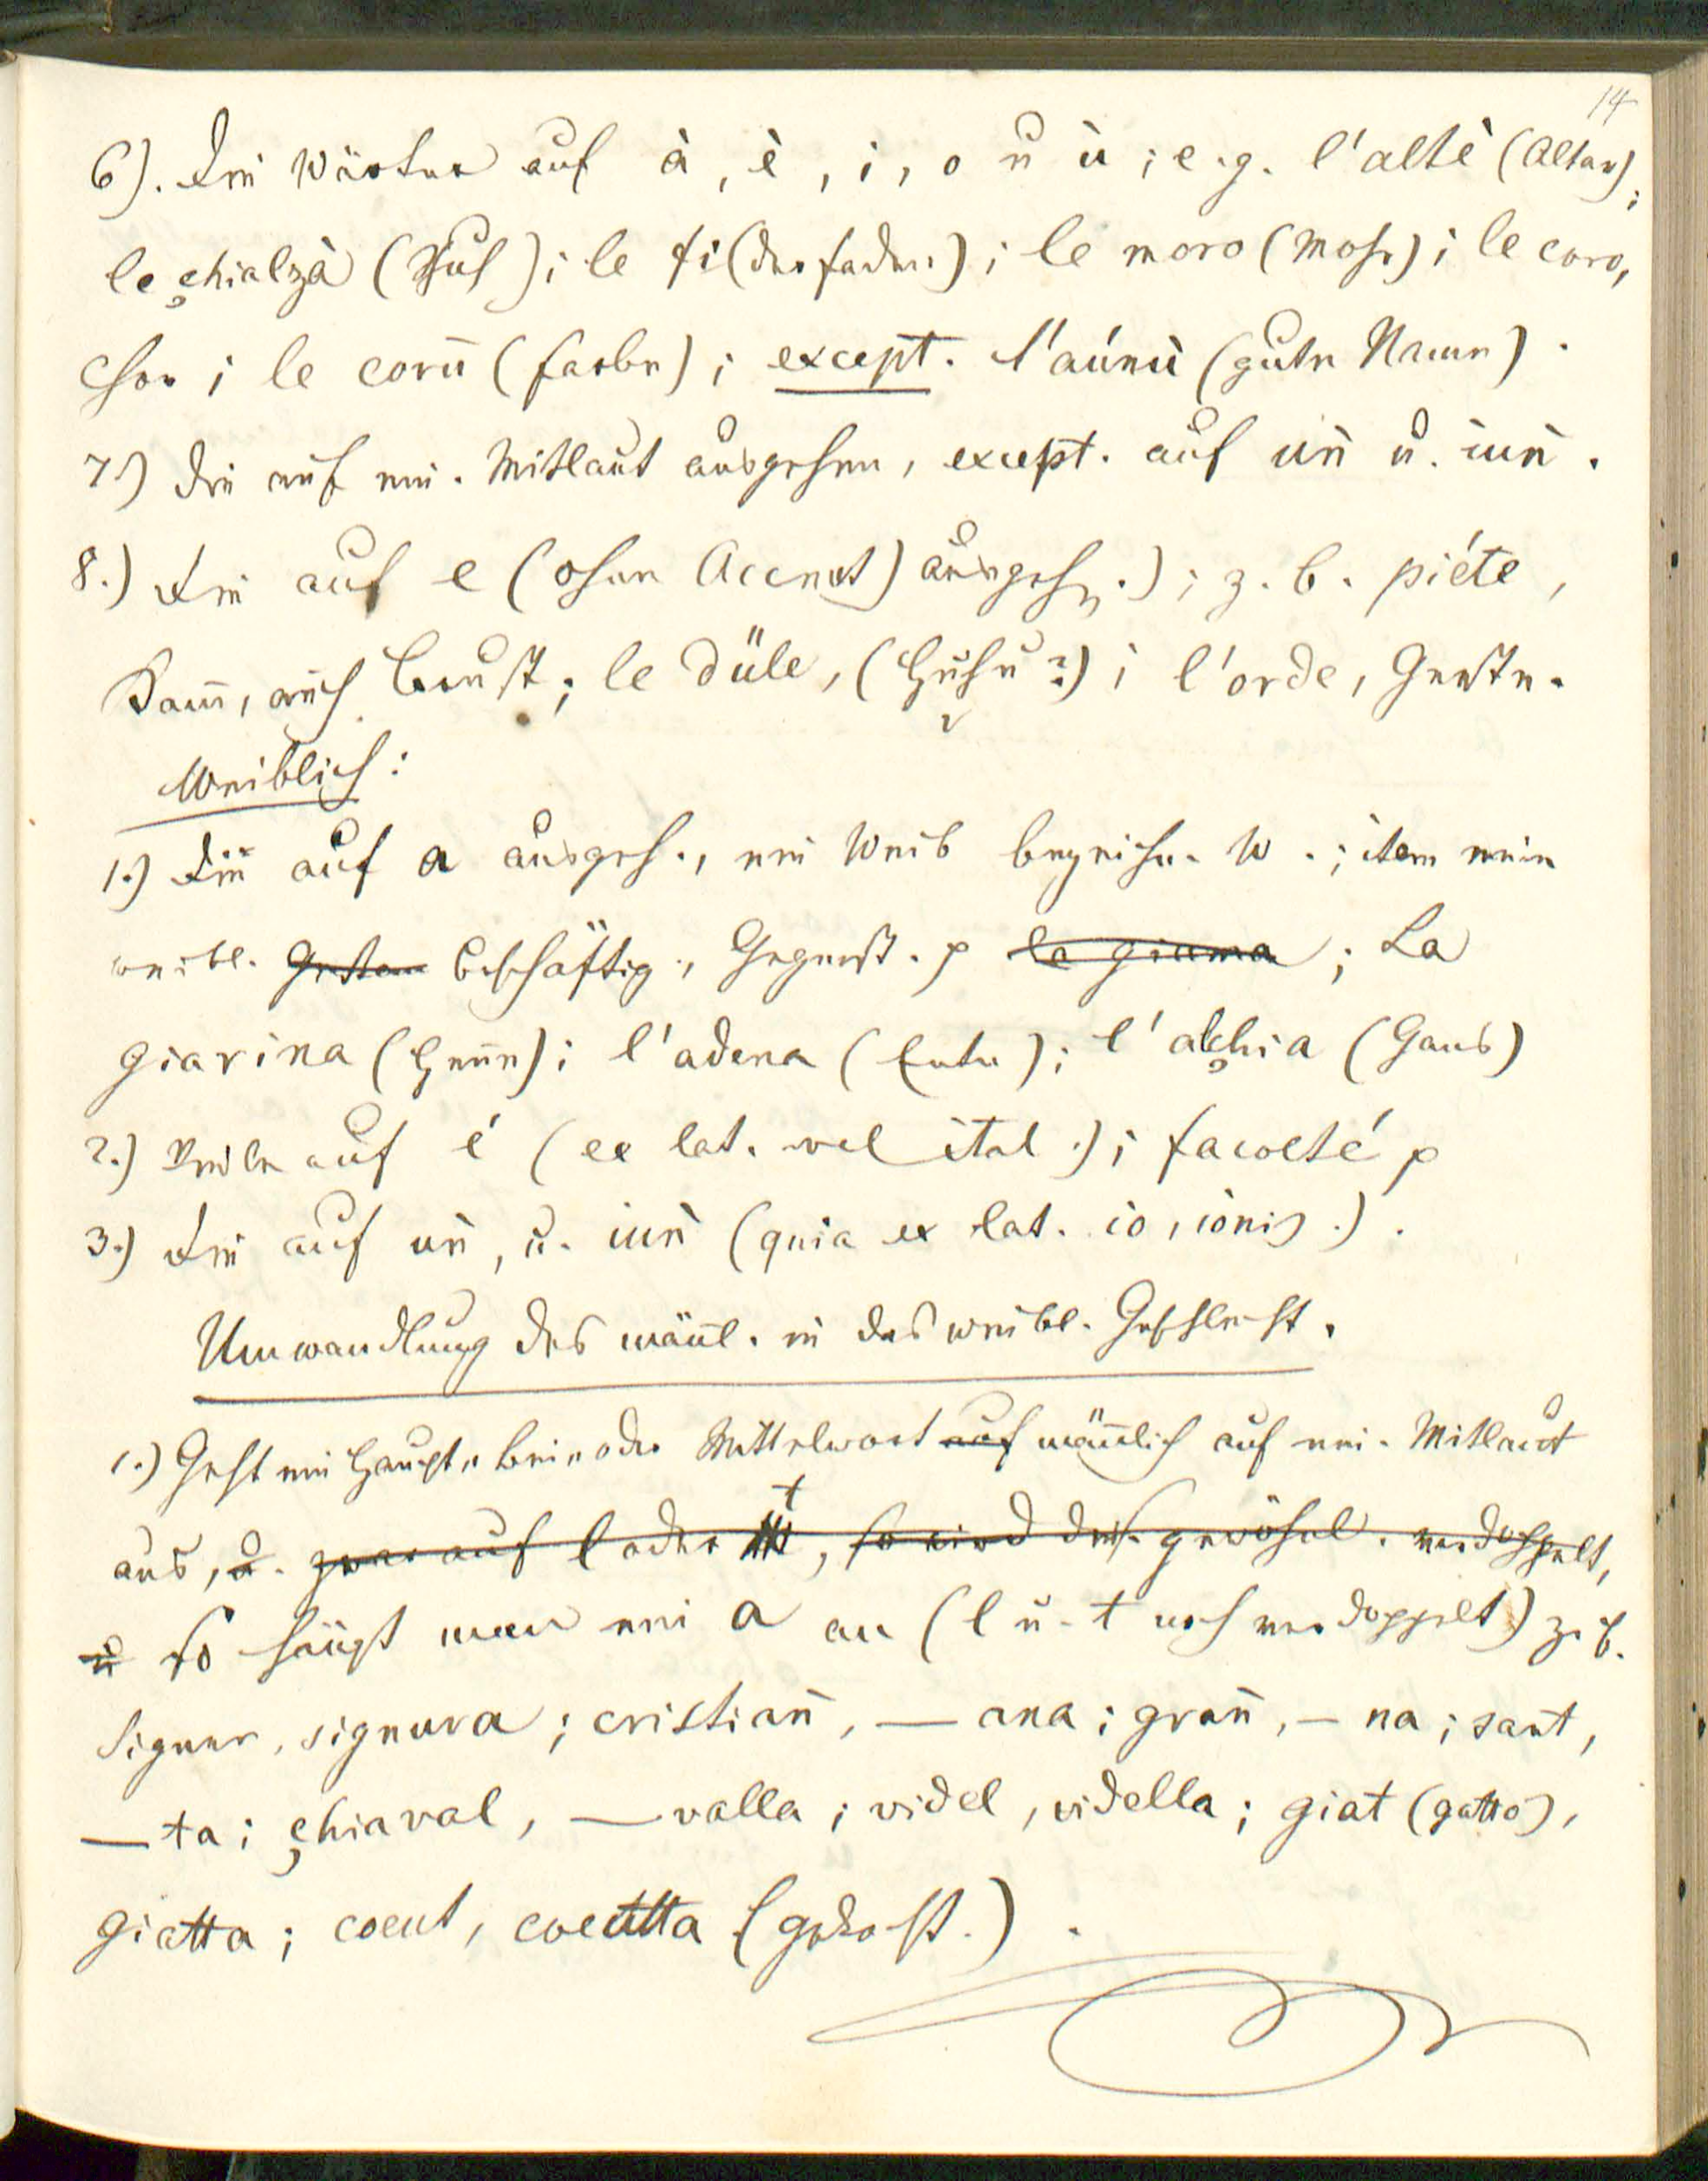 14
6). Die Wörter auf à, è, i, o u ù; e.g. l'altè (Altar);
le çhialzà (Schuh); le fi (der Faden); le moro (Mohr); le coro,
Chor; le corù (Farbe); except. l'aúnù (gute Name).
7.) die auf ein. Mitlaut ausgehen, except. auf un̄ u. iun̄.
8.) Die auf e (ohne Accent) ausgeh.); z. b. piéte,
Kam̄, auch Brust; le düle, (Huhu?); l'orde, Gerste.
Weiblich:
1.) Die auf a ausgeh., ein Weib bezeichn. W.; item eine
weibl. Beschäftig., Gegenst. p la giama; La
giarina (Henne); l'adena (Ente); l'alçhia (Gans)
2.) Viele auf é (ex lat. vel ital.); facolté p
3.) Die auf un̄, u. iun̄ (quia ex lat. io, ionis.).
Umwandlung des män̄l. in das weibl. Geschlecht.
1.) Geht ein Haupt-, Bei- oder Mittelwort auf män̄lich auf ein. Mitlaut
aus, u. zwar auf l oder t, so wird dies. gewöhnl. verdoppelt,
u so hängt man ein a an (l u. t noch verdoppelt) z. b.
Signur, signura; cristian̄, — ana; gran̄, — na; sant,
— ta; çhiaval, — valla; videl, vidella; giat (gatto),
giatta; coeut, coeutta (gekocht.).